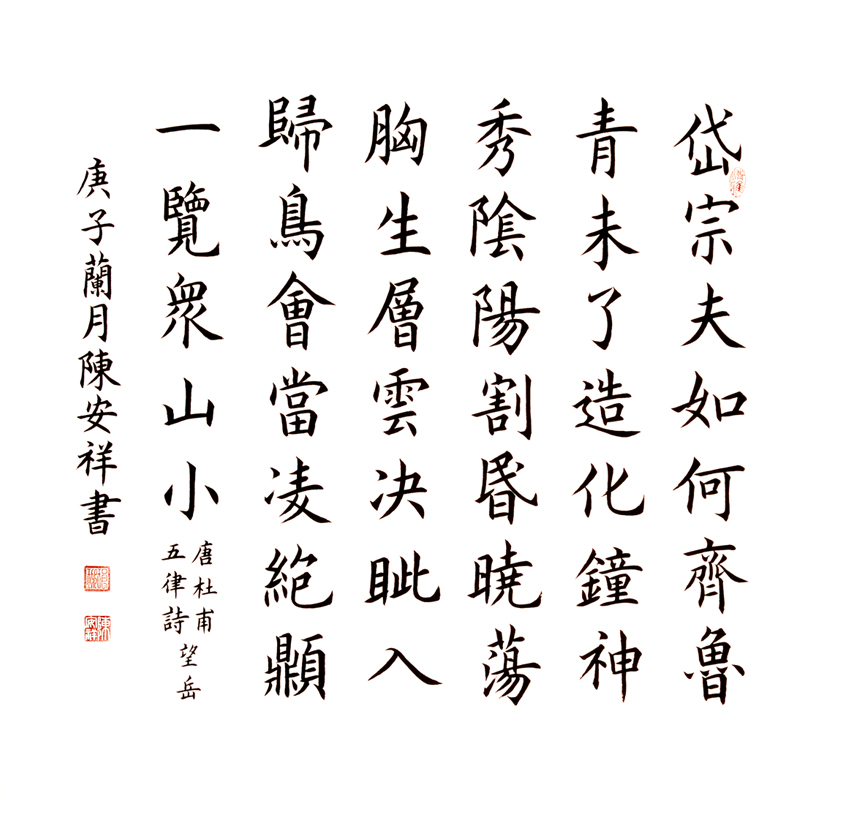 岱宗夫如何齊魯
青未了造化鐘神
秀陰陽割昬曉蕩
胸生層雲決眦入
歸鳥會當凌絕顚
一覽衆山小
唐杜甫
五律詩
望岳
庚子蘭月陳安祥書
陳安祥